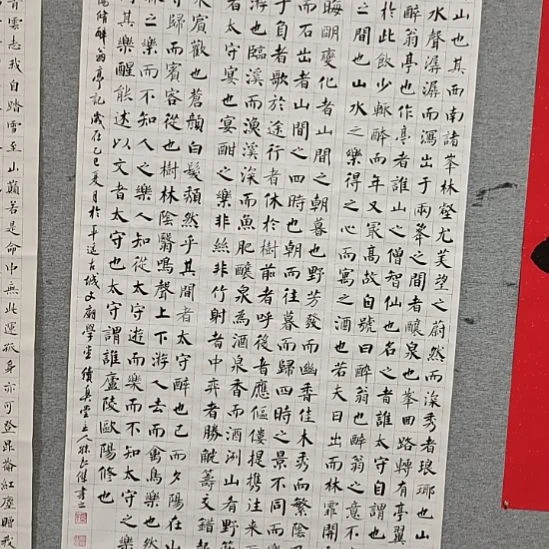 山也其西南諸峯林壑尤美望之蔚然而深秀者琅琊也山
水聲潺潺而瀉出于兩峯之間者釀泉也峯回路轉有亭翼
醉翁亭也作亭者誰山之僧智仙也名之者誰太守自謂
於此飲少輒醉而年又最高故自號曰醉翁也醉翁之意不
之間也山水之樂得之心而寓之酒也若夫日出而林霏開
晦明變化者山間之朝暮也野芳發而幽香佳木秀而繁陰
而石出者山間之四時也朝而往暮而歸四時之景不同而
于負者歌於途行者休於樹前者呼後者應傴僂提攜往來
游也臨溪而漁溪深而魚肥釀泉為酒泉香而酒洌山肴野
者太守宴也宴酣之樂非絲非竹射者中弈者勝觥籌交錯
賓歡也蒼顏白髮頹然乎其間者太守醉也已而夕陽在山
守歸而賓客從也樹林陰翳鳴聲上下游人去而禽鳥樂也然
林之樂而不知人之樂人知從太守遊而樂而不知太守之樂
同其樂醒能述以文者太守也太守謂誰廬陵歐陽修也
陽脩醉翁亭記歲在乙巳夏月於平遥古城文廟學宮堂主人書
青雲志我自踏雪至山巔若是命中無此運孤身亦可登昆崙紅塵贈我